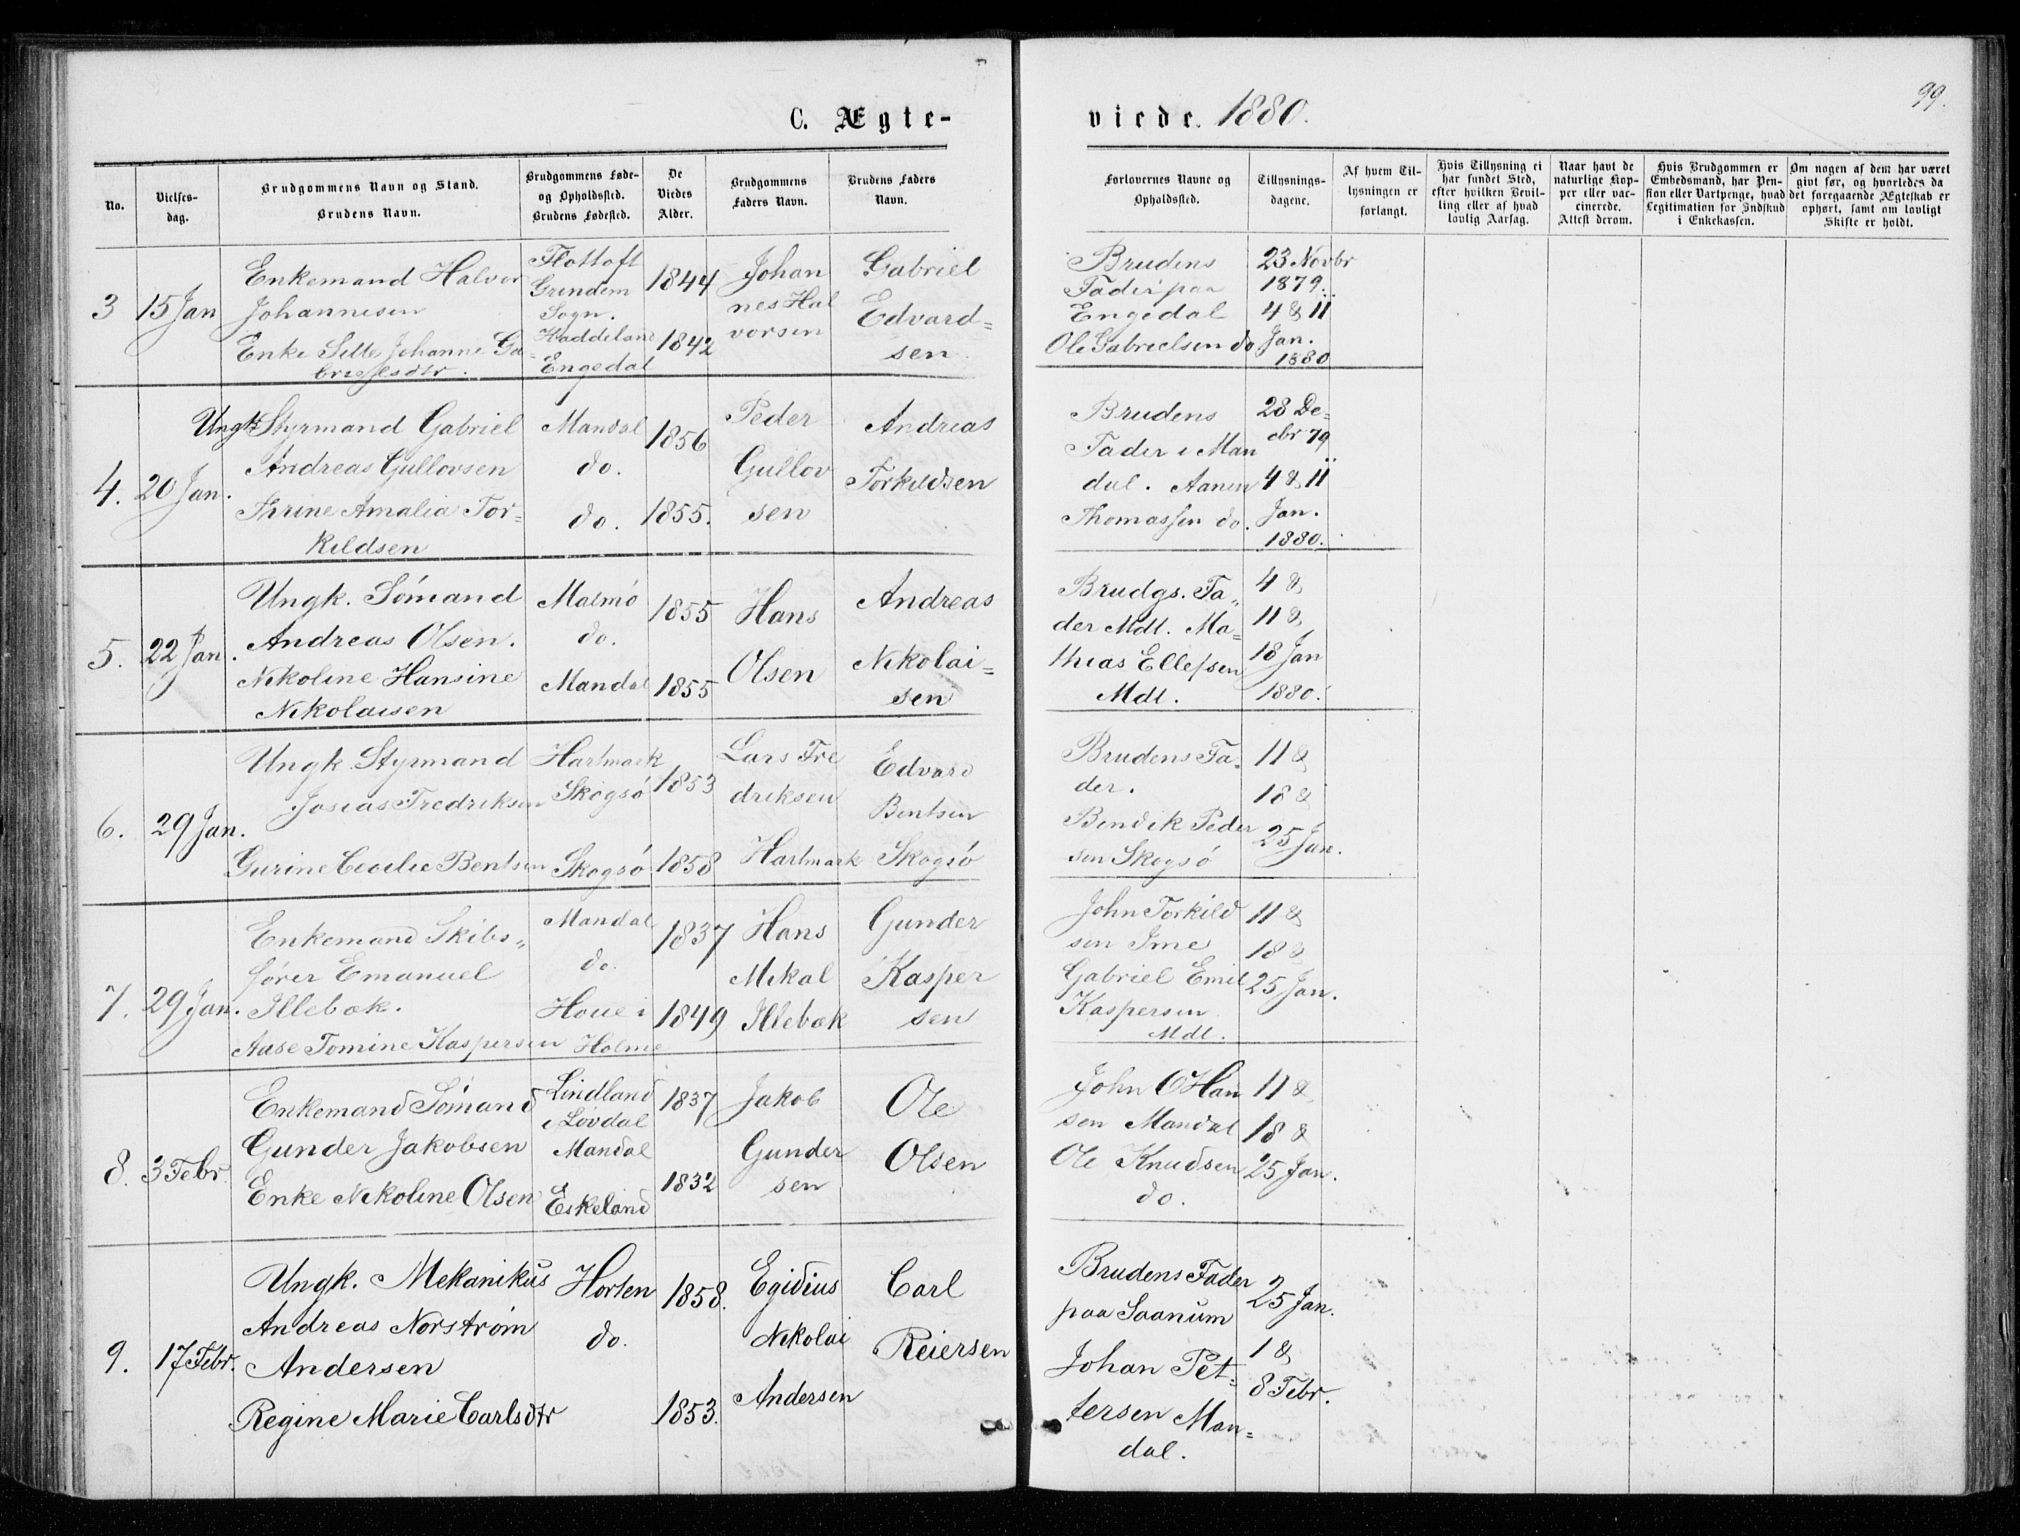 99.
C. Ægte- viede. 1880.
No.
Vielses-
dag.
Brudgommens Navn og Stand.
Brudens Navn.
Brudgommens Føde-
og Opholdssted.
Brudens Fødested.
De
Viedes
Alder.
Brudgommens
Faders Navn.
Brudens Faders
Navn.
Forlovernes Navne og
Opholdssted.
Tillysnings-
dagene.
Af hvem Til-
lysningen er
forlangt.
Hvis Tillysning ei
har fundet Sted,
efter hvilken Bevil-
ling eller af hvad
lovlig Aarsag.
Naar havt de
naturlige Kop-
per eller vac-
cinerede.
Attest derom.
Hvis Brudgommen er
Embedsmand, har Pen-
sion eller Vartpenge, hvad
Legitimation for Indskud
i Enkekassen.
Om nogen af dem har været
givt før, og hvorledes da
det foregaaende Ægteskab er
ophørt, samt om lovligt
Skifte er holdt.
3
15 Jan
Enkemand Halvor
Johannesen
Enke Sille Johanne Ga-
brielsdtr.
Flottoft
Grindem
Sogn.
Haddeland
Engedal
1844
1842
Johan
nes Hal
vorsen
Gabriel
Edvard=
sen
Brudens
Fader paa
Engedal
Ole Gabrielsen do
23 Novbr
1879.
4 & 11
Jan.
1880
4.
20 Jan.
Ungk. Styrmand Gabriel
Andreas Gullovsen
Thrine Amalia Tor=
kildsen
Mandal
do.
do.
1856
1855.
Peder
Gullov
sen
Andreas
Torkildsen
Brudens
Fader i Man
dal. Aanen
Thomassen do.
28 De=
cbr 79
4 & 11
Jan.
1880.
5.
22 Jan.
Ungk. Sömand
Andreas Olsen.
Nikoline Hansine
Nikolaisen
Malmö
do.
Mandal
1855
1855
Hans
Olsen
Andreas
Nikolai=
sen
Brudgs. Fa„
der Mdl. Ma=
thias Ellefsen
Mdl.
4 &
11 &
18 Jan
1880.
6.
29 Jan.
Ungk. Styrmand
Josias Fredriksen
Gurine Cecilie Bentsen
Hartmark
Skogsö
Skogsö
1853
1858
Lars Fre
driksen
Hartmark
Edvard
Bentsen
Skogsö
Brudens Fa-
der.
Bendik Peder
sen Skogsö
11 &
18 &
25 Jan.
7.
29 Jan.
Enkemand Skibs„
förer Emanuel
Illebæk.
Aase Tomine Kaspersen
Mandal
do.
Houe i
Holme
1837
1849
Hans
Mikal
Illebæk
Gunder
Kasper
sen
John Torkild
sen Ime
Gabriel Emil
Kaspersen
Mdl.
11 &
18 &
25 Jan.
8.
3 Febr.
Enkemand Sömand
Gunder Jakobsen
Enke Nikoline Olsen
Lindland
i Lövdal
Mandal
Eskeland
1837
1832
Jakob
Gunder
sen
Ole
Olsen
John O Han
sen Mandal
Ole Knudsen
do.
11 &
18 &
25 Jan.
9.
17 Febr.
Ungk. Mekanikus
Andreas Norström
Andersen
Regine Marie Carlsdtr
Horten
do.
1858.
1853.
Egidius
Nikolai
Andersen
Carl
Reiersen
Brudens Fader
paa Saanum
Johan Pet=
tersen Man=
dal.
25 Jan.
1 &
8 Febr.